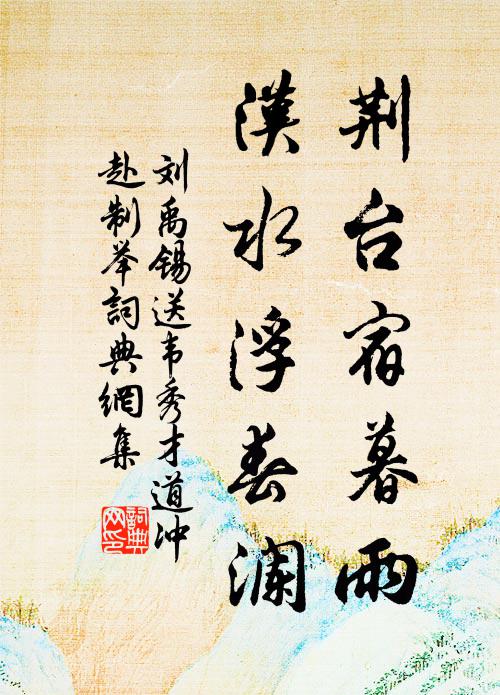 荆台宿暮雨
漢水浮春澜
刘禹锡送韦秀才道冲
赴制举詞典網集
詞典網印